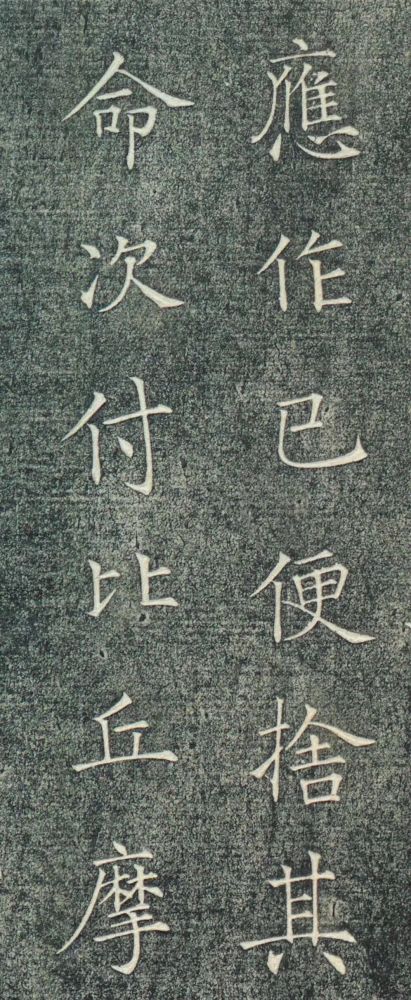 應作已便捨其
命次付比丘摩